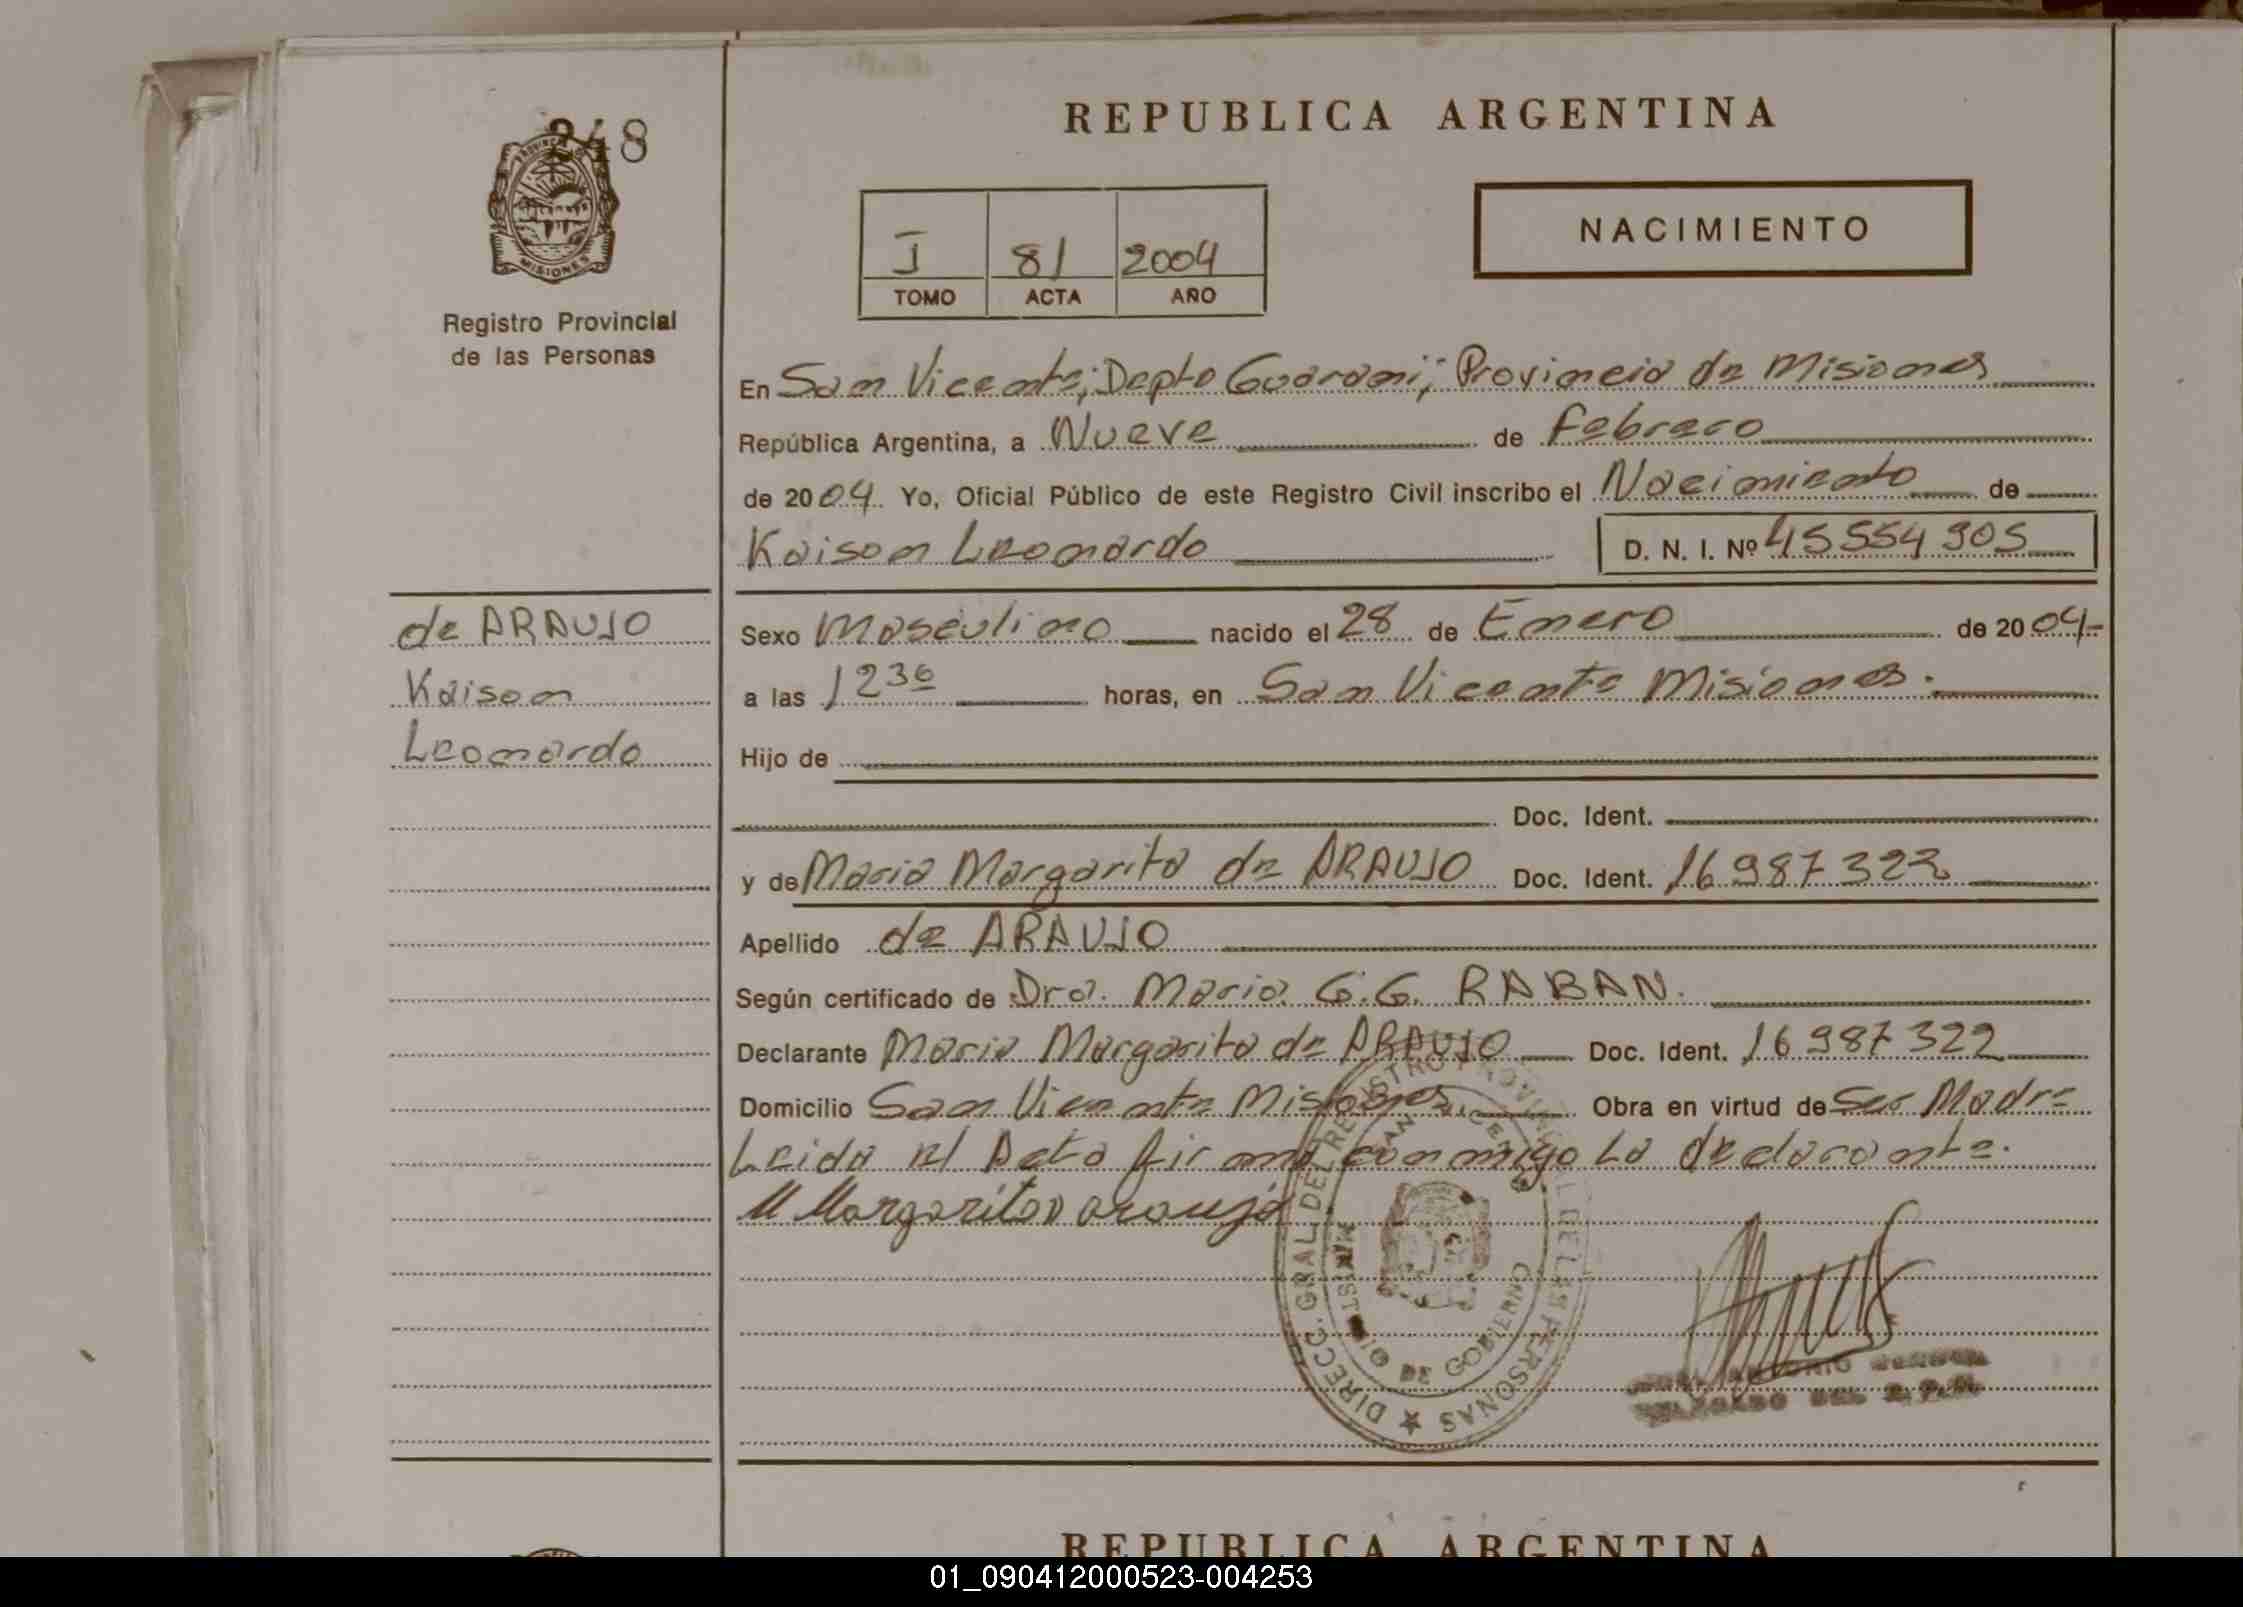 248
PROVINCIA DE
MISIONES
Registro Provincial
de las Personas
REPUBLICA ARGENTINA
NACIMIENTO
I 81 2004
TOMO ACTA AÑO
En San Vicente; Depto Guarani; Provincia de Misiones
República Argentina, a Nueve de Febrero
de 2004. Yo, Oficial Público de este Registro Civil inscribo el Nacimiento de
Kaison Leonardo D. N. I. Nº 45554905
de ARAUJO
Kaison
Leonardo
Sexo Masculino nacido el 28 de Enero de 2004-
a las 1230 horas, en San Vicente Misiones.
Hijo de
Doc. Ident.
y de Maria Margarita de ARAUJO Doc. Ident. 16987322
Apellido de ARAUJO
Según certificado de Dra. Maria G.G. RABAN.
Declarante Maria Margarita de ARAUJO Doc. Ident. 16987322
Domicilio San Vicente Misiones. Obra en virtud de Ser Madre
Leida el Acta firma conmigo La declarante.
M Margarita araujo
DIRECC. GRAL. DEL REGISTRO PROVINCIAL DE LAS PERSONAS
SAN VICENTE
MINISTERIO DE GOBIERNO
DELEGADO DEL R.P.P.
REPUBLICA ARGENTINA
01_090412000523-004253